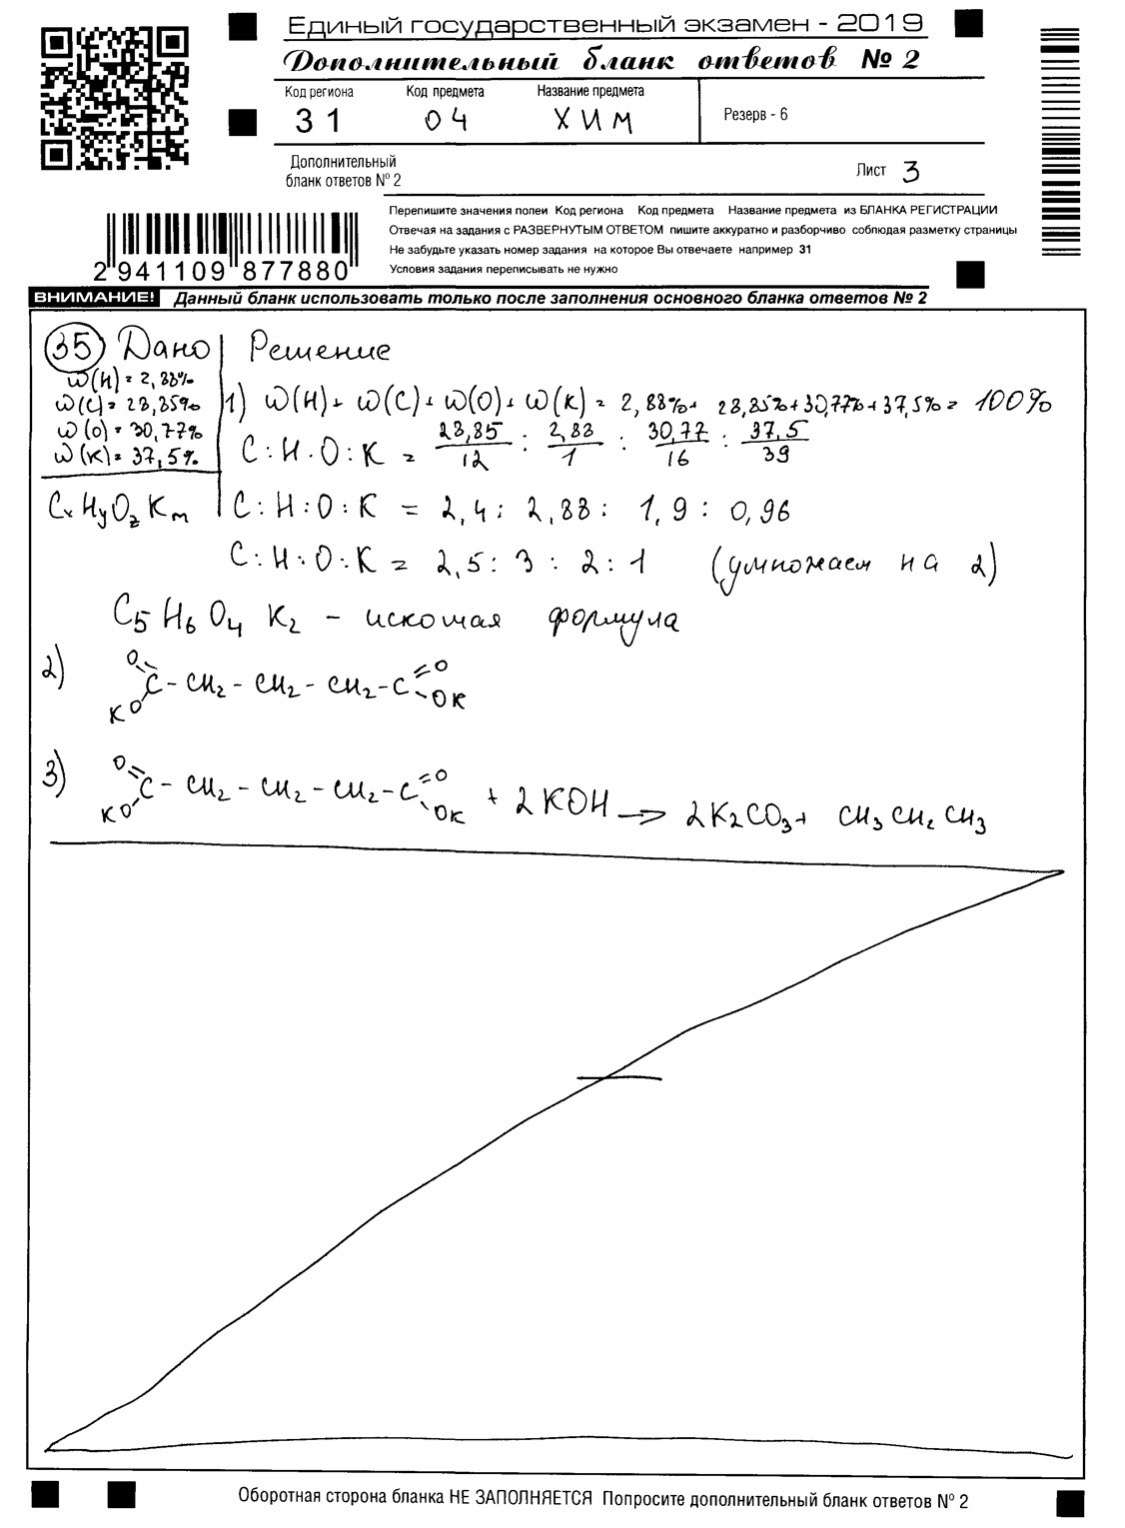 Единый государственный экзамен - 2019
Дополнительный бланк ответов № 2
Код региона Код предмета Название предмета
31 04 ХИМ
Резерв - 6
Дополнительный
бланк ответов № 2
Лист 3
Перепишите значения полеи Код региона Код предмета Название предмета из БЛАНКА РЕГИСТРАЦИИ
Отвечая на задания с РАЗВЕРНУТЫМ ОТВЕТОМ пишите аккуратно и разборчиво соблюдая разметку страницы
Не забудьте указать номер задания на которое Вы отвечаете например 31
Условия задания переписывать не нужно
2 941109 877880
ВНИМАНИЕ! Данный бланк использовать только после заполнения основного бланка ответов № 2
35 Дано Решение
ω(H) = 2,88%
ω(C) = 28,85%
ω(O) = 30,77%
ω(K) = 37,5%
CxHyOzKm
1) ω(H) + ω(C) + ω(O) + ω(K) = 2,88% + 28,85% + 30,77% + 37,5% = 100%
C : H : O : K = 28,85/12 : 2,88/1 : 30,77/16 : 37,5/39
C : H : O : K = 2,4 : 2,88 : 1,9 : 0,96
C : H : O : K = 2,5 : 3 : 2 : 1 (умножаем на 2)
C5H6O4K2 - искомая формула
2) O=C(KO) - CH2 - CH2 - CH2 - C(=O)OK
3) O=C(KO) - CH2 - CH2 - CH2 - C(=O)OK + 2KOH → 2K2CO3 + CH3CH2CH3
Оборотная сторона бланка НЕ ЗАПОЛНЯЕТСЯ Попросите дополнительный бланк ответов № 2